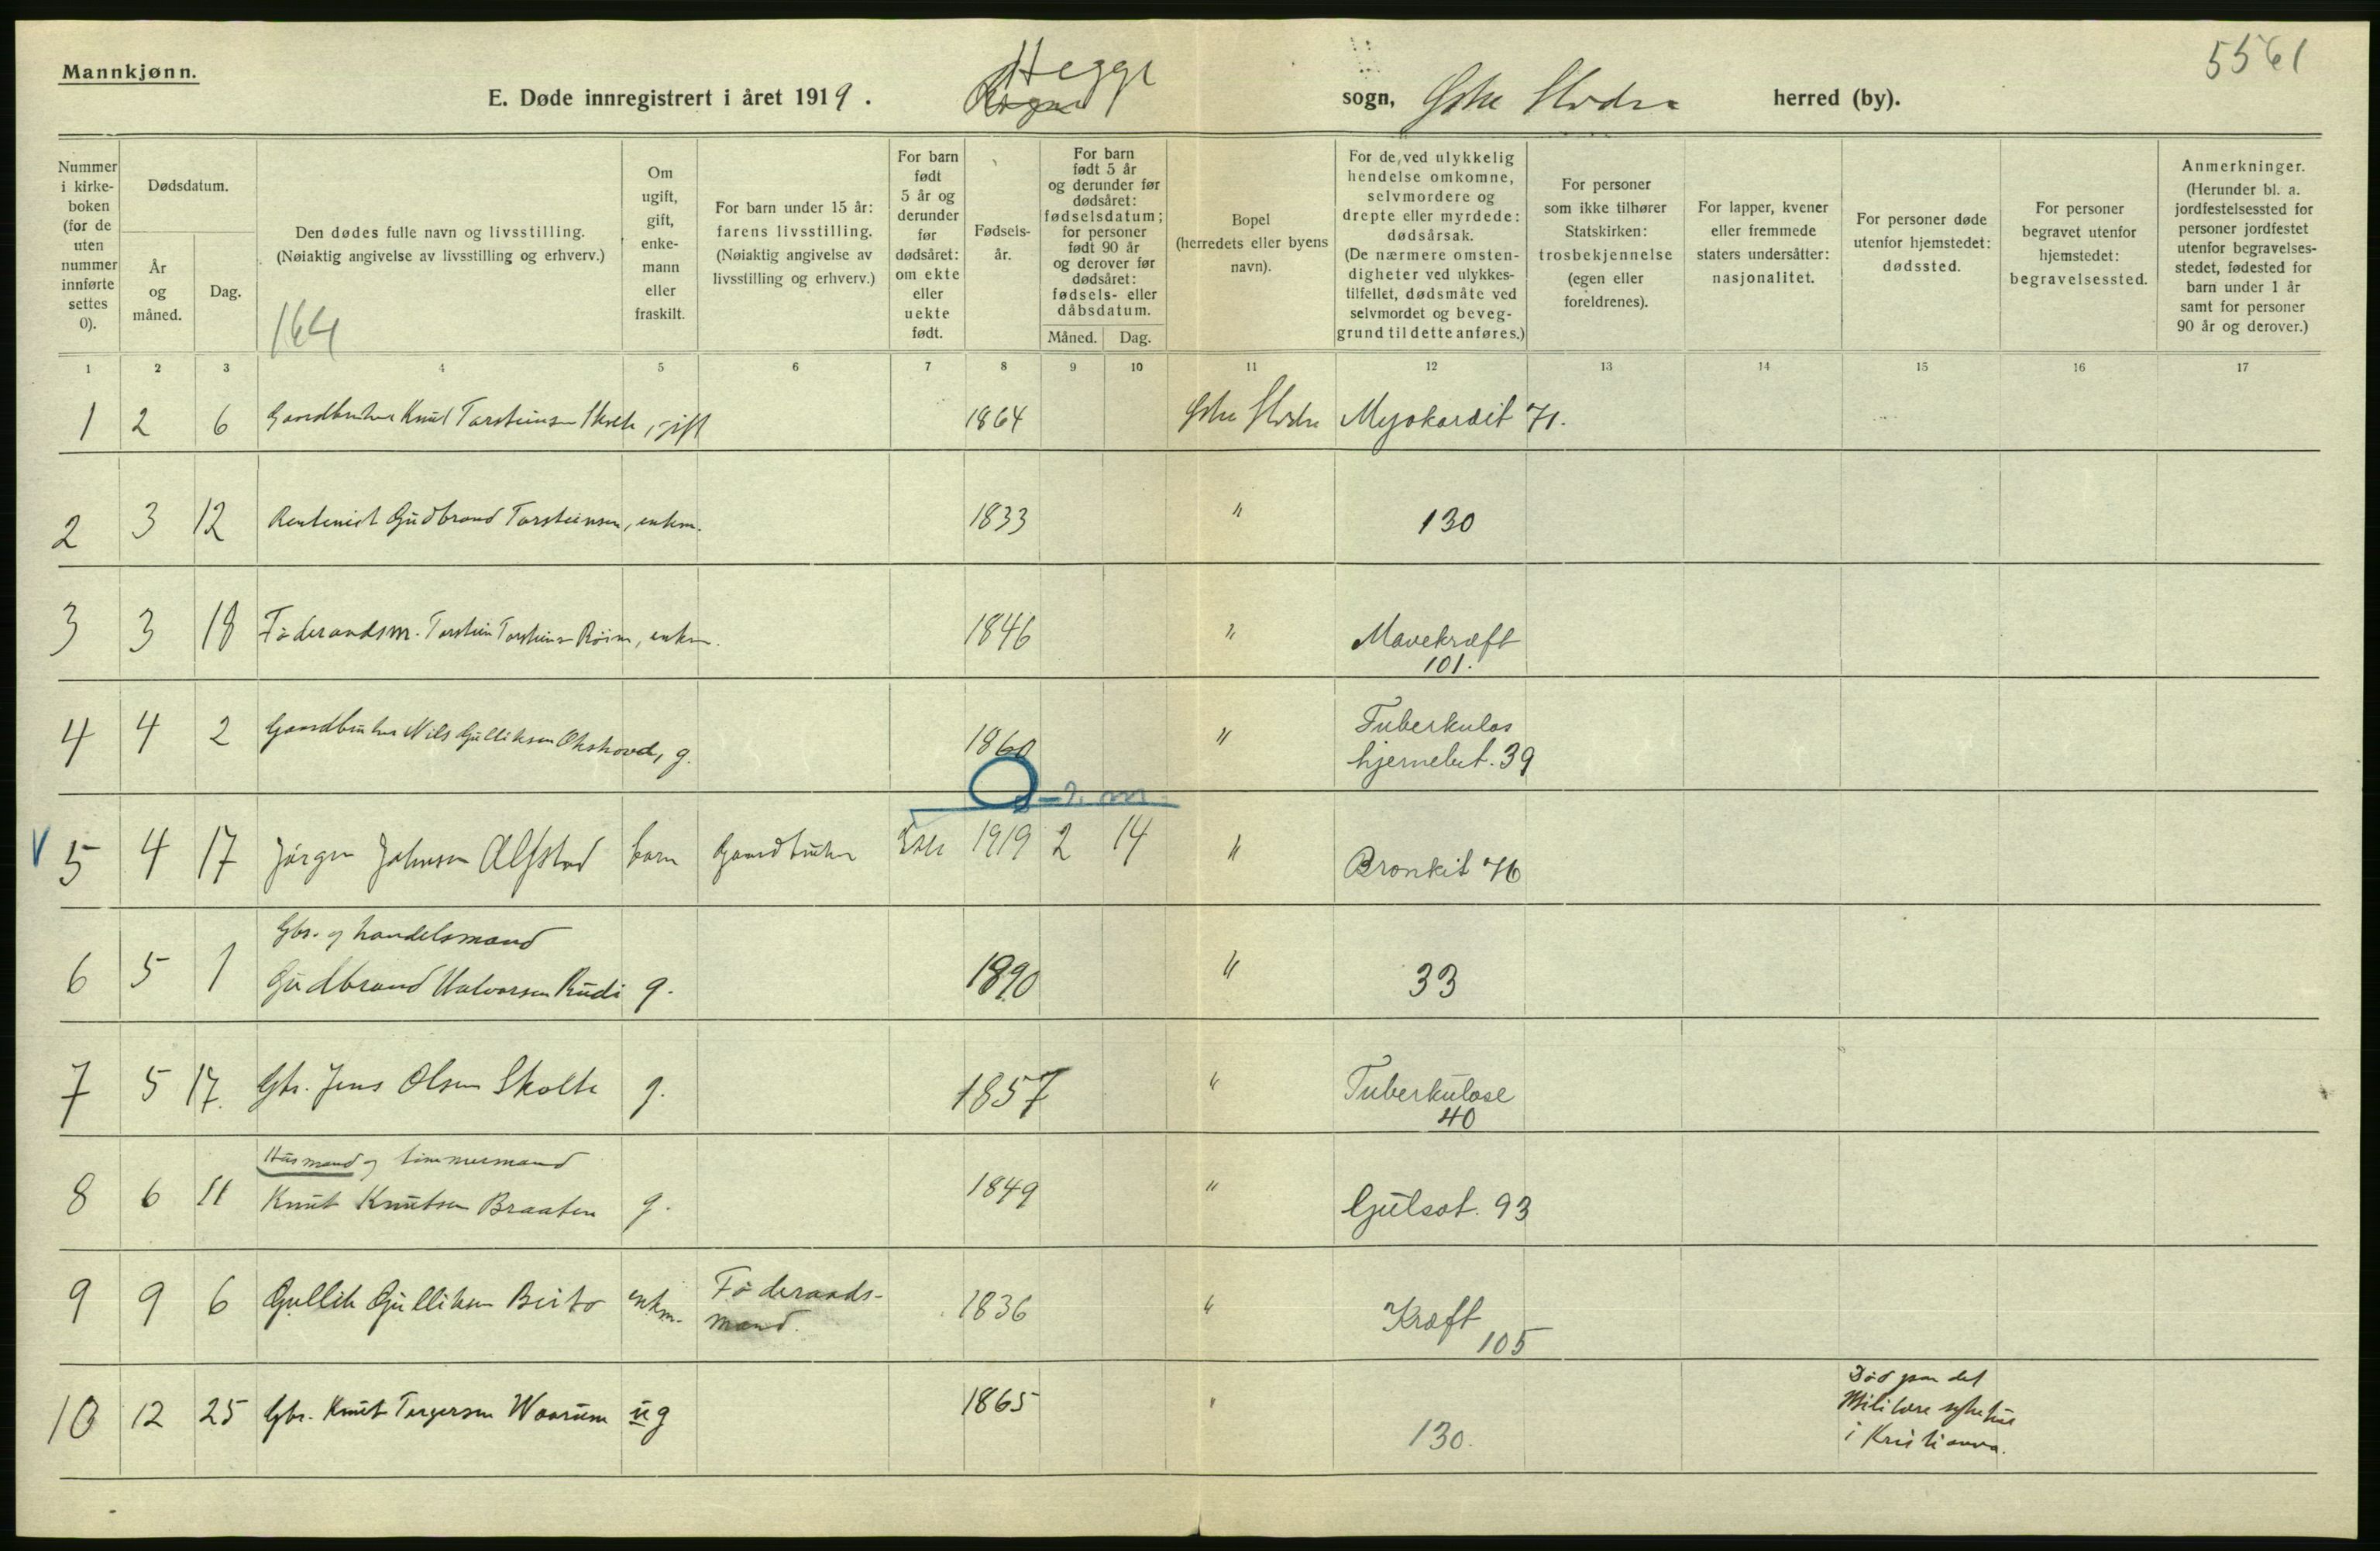 Mannkjønn.
5561
E. Døde innregistrert i året 1919. Hegge sogn, Østre Slidre herred (by).
Rogne
Nummer i kirke-boken (for de uten nummer innførte settes 0).
Dødsdatum.
År og måned.
Dag.
Den dødes fulle navn og livsstilling.
(Nøiaktig angivelse av livsstilling og erhverv.)
164
Om ugift, gift, enke-mann eller fraskilt.
For barn under 15 år: farens livsstilling.
(Nøiaktig angivelse av livsstilling og erhverv.)
For barn født 5 år og derunder før dødsåret: om ekte eller uekte født.
Fødsels-år.
For barn født 5 år og derunder før dødsåret: fødselsdatum; for personer født 90 år og derover før dødsåret: fødsels- eller dåbsdatum.
Måned. Dag.
Bopel (herredets eller byens navn).
For de, ved ulykkelig hendelse omkomne, selvmordere og drepte eller myrdede: dødsårsak.
(De nærmere omsten-digheter ved ulykkes-tilfellet, dødsmåte ved selvmordet og beveg-grund til dette anføres.)
For personer som ikke tilhører Statskirken: trosbekjennelse (egen eller foreldrenes).
For lapper, kvener eller fremmede staters undersåtter: nasjonalitet.
For personer døde utenfor hjemstedet: dødssted.
For personer begravet utenfor hjemstedet: begravelsessted.
Anmerkninger.
(Herunder bl. a. jordfestelsessted for personer jordfestet utenfor begravelses-stedet, fødested for barn under 1 år samt for personer 90 år og derover.)
1 2 3 4 5 6 7 8 9 10 11 12 13 14 15 16 17
1 2 6 Gaardbruker Knut Torsteinsen, gift 1864 Østre Slidre Myokardit 71.
2 3 12 Rentenist Gudbrand Torsteinsen, enkm. 1833 " 130
3 3 18 Föderaadsm. Torstein Torsteinsen, enkm. 1846 " Mavekræft
101.
4 4 2 Gaardbruker Nils Gulliksen Okshovd, g. 1860 " Tuberkuløs
hjernebet. 39
0-2. m.
V 5 4 17 Jörgen Johnsen Alfstad barn Gaardbruker Ekte 1919 2 14 " Bronkit 76
Gbr. og handelsmand
6 5 1 Gudbrand Halvorsen Rudi g. 1890 " 33
7 5 17. Gbr. Jens Olsen Skolte g. 1857 " Tuberkulose
40
Husmand og tömmermand
8 6 11 Knut Knutsen Braaten g. 1849 " Gulsot. 93
9 9 6 Gullik Gulliksen Beito enkm. Föderaads-
mand. 1836 " Kræft
105
10 12 25 Gbr. Knut Torgersen ug 1865 " 130. Död paa det
Militære sykehus
i Kristiania.